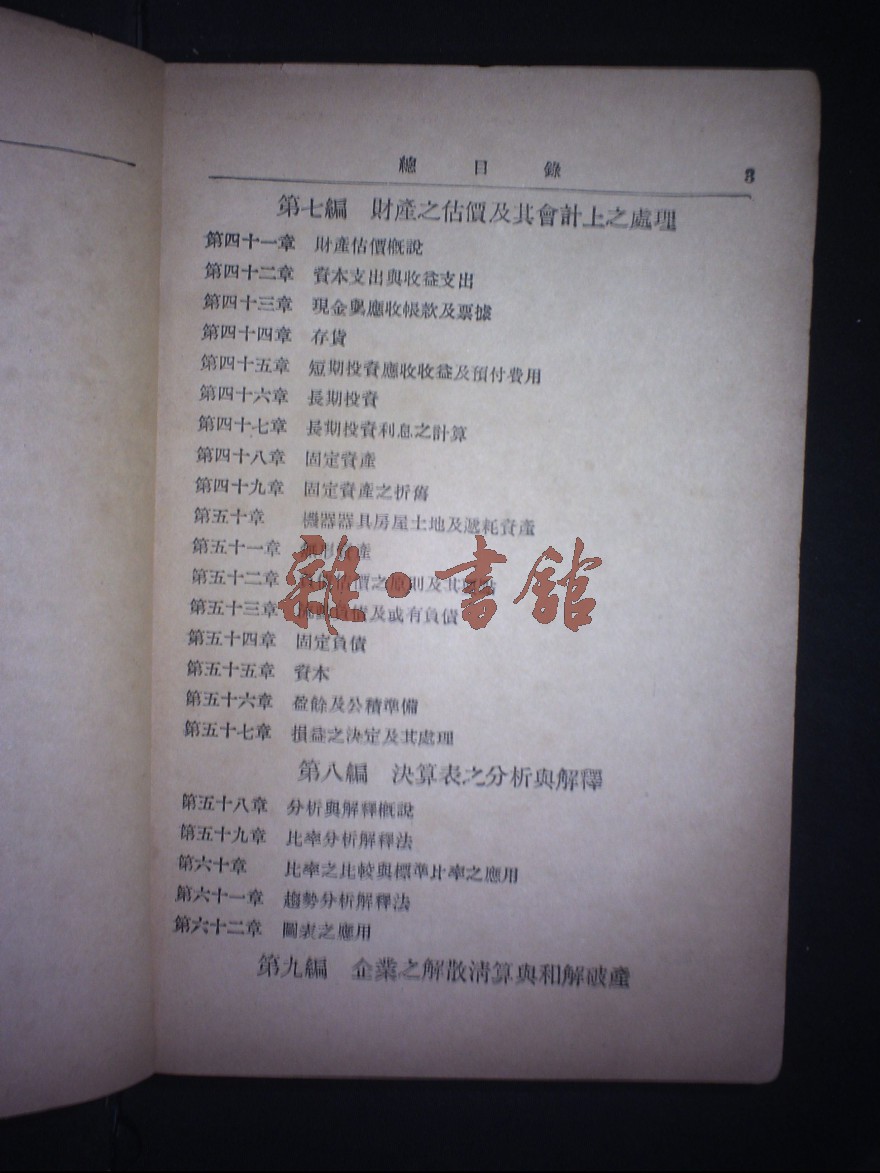 總目錄 3
第七編 財產之估價及其會計上之處理
第四十一章 財產估價概說
第四十二章 資本支出與收益支出
第四十三章 現金與應收帳款及票據
第四十四章 存貨
第四十五章 短期投資應收收益及預付費用
第四十六章 長期投資
第四十七章 長期投資利息之計算
第四十八章 固定資產
第四十九章 固定資產之折舊
第五十章 機器器具房屋土地及遞耗資產
第五十一章 無形資產
第五十二章 負債估價之原則及其
第五十三章 流動負債及或有負債
第五十四章 固定負債
第五十五章 資本
第五十六章 盈餘及公積準備
第五十七章 損益之決定及其處理
第八編 決算表之分析與解釋
第五十八章 分析與解釋概說
第五十九章 比率分析解釋法
第六十章 比率之比較與標準比率之應用
第六十一章 趨勢分析解釋法
第六十二章 圖表之應用
第九編 企業之解散清算與和解破產
雜·書館